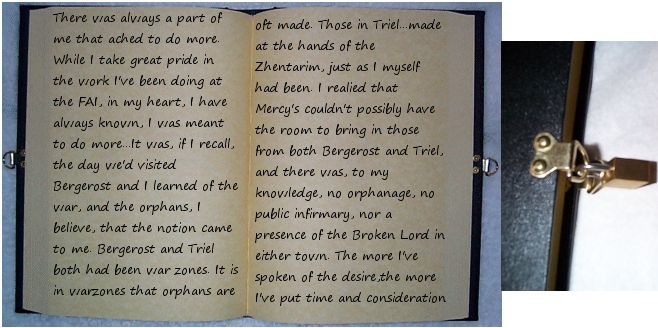 There was always a part of
me that ached to do more.
While I take great pride in
the work I've been doing at
the FAI, in my heart, I have
always known, I was meant
to do more...It was, if I recall,
the day we'd visited
Bergerost and I learned of the
war, and the orphans, I
believe, that the notion came
to me. Bergerost and Triel
both had been war zones. It is
in warzones that orphans are
oft made. Those in Triel...made
at the hands of the
Zhentarim, just as I myself
had been. I realied that
Mercy's couldn't possibly have
the room to bring in those
from both Bergerost and Triel,
and there was, to my
knowledge, no orphanage, no
public infirmary, nor a
presence of the Broken Lord in
either town. The more I've
spoken of the desire,the more
I've put time and consideration